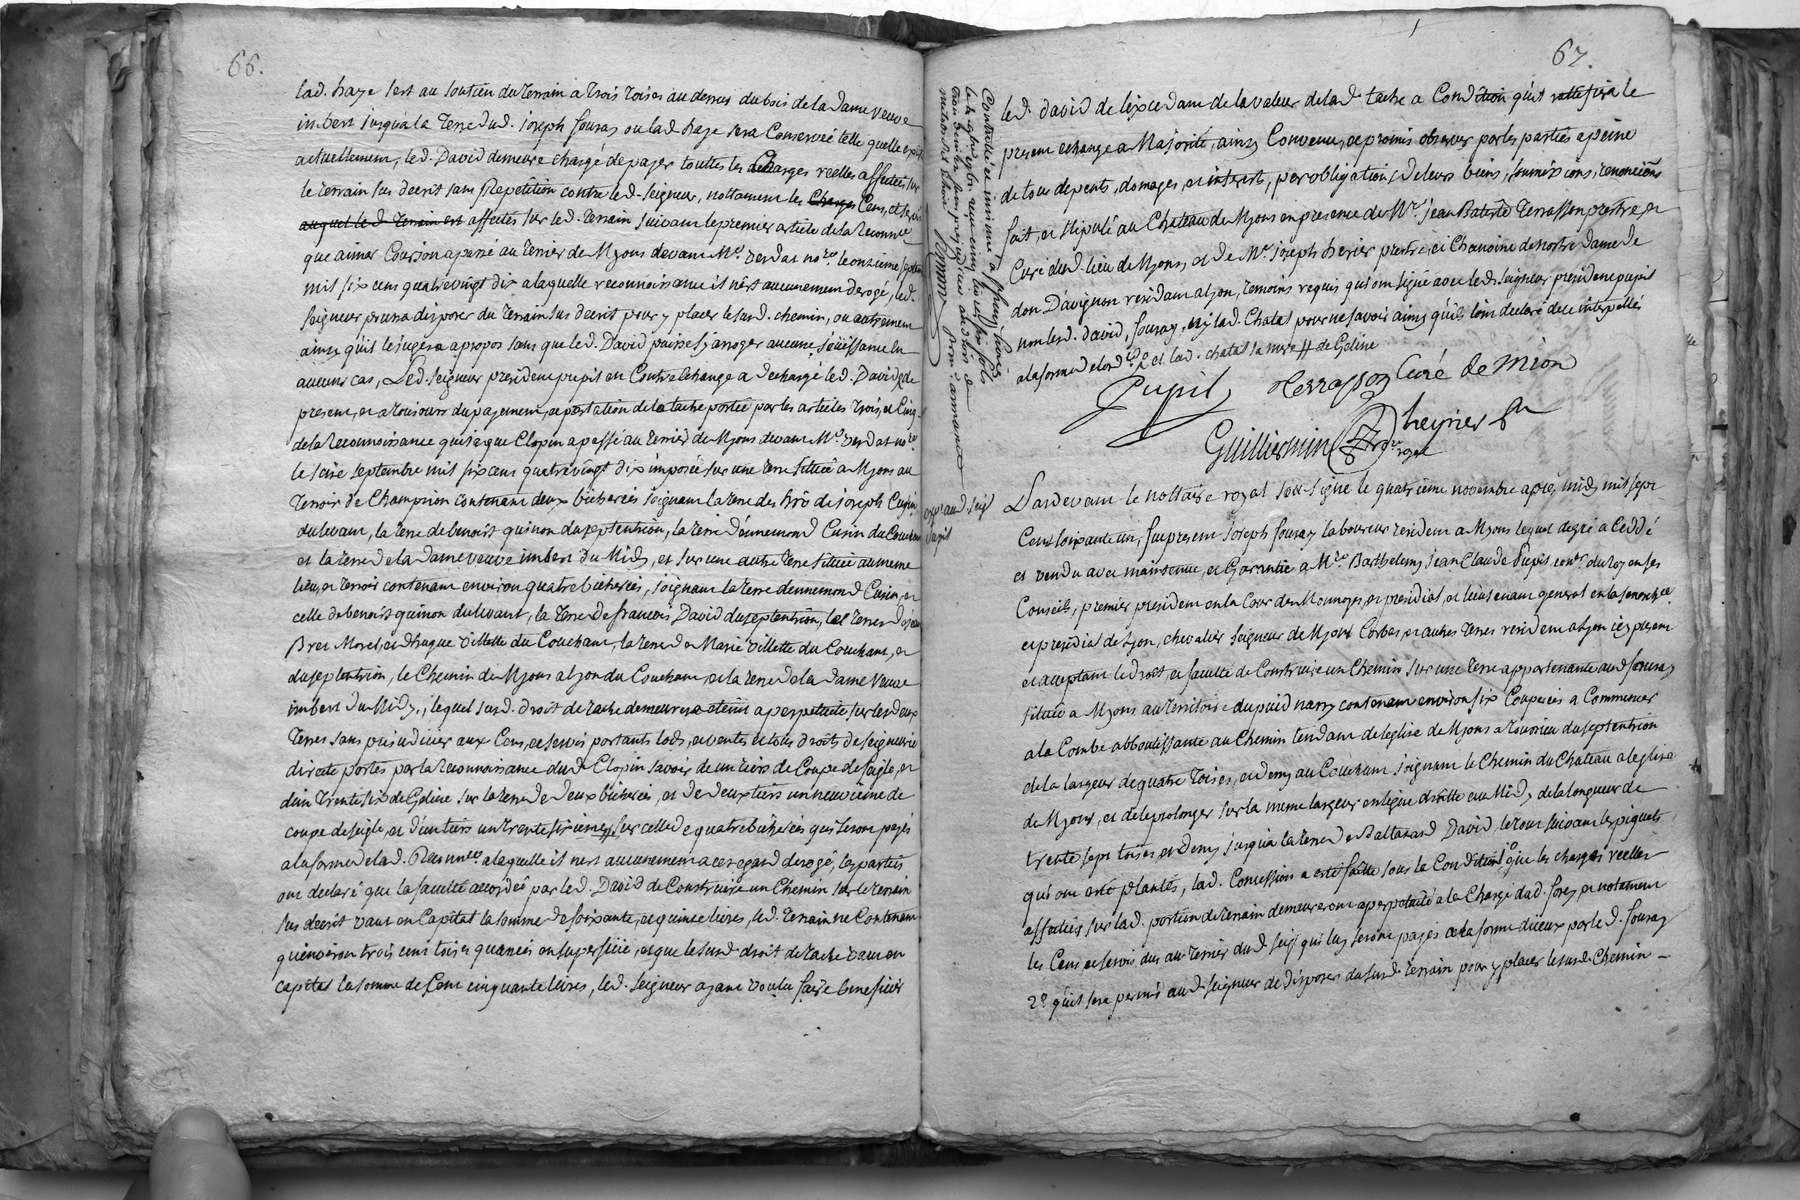 66.
lad. haye sert au soutien du terrain a trois toises au dessus du bois de la dame veuve
imbert jusqua la terre dud. joseph fouray ou lad. haye sera Conservée telle quelle est
actuellement, led. David demeure chargé de payer touttes les Charges reelles affectées sur
le terrain sus decrit sans Repetition contre led. Seigneur, nottament les Charges Cens, et servis
auquel led. terrain est affectés sur led. terrain suivant le premier article de la reconnce
que aimar Courson a passé au terrier de Myons devant Me. verdat nore. le onzieme septembre
mil six cens quatre vingt dix a laquelle reconnoissance il n'est aucunement derogé, led.
Seigneur pourra disposer du terrain sus decrit pour y placer le susd. chemin, ou autrement
ainsy qu'il le jugera a propos sans que led. David puisse s'y arroger aucune joüissance en
aucuns cas, Led. Seigneur president pupil en Contre echange a dechargé led. David de
present, et a toujours du payement, et prestation de la tache portée par les articles trois, et Cinq
de la reconnoissance que jacque Clopin a passé au terrier de Myons devant Me. verdat nore
le seize septembre mil six cens quatre vingt dix imposée sur une terre sittuée a Myons au
terroir de Champrion contenant deux bicherées joignant la terre des hrs de joseph Cusin
du levant, la terre de benoist quinon du septentrion, la terre d'ennemond Cusin du Couchant
et la terre de la dame veuve imbert du Midy, et sur une autre terre sittuée au meme
lieu, et terroir contenant environ quatre bicherées, joignant la terre dennemond Cusin, et
celle de benoist quinon du levant, la terre de francois David du septentrion, les terres de
Bret Morel, et hugue villette du Couchant, la terre de Marie villette du Couchant, et
du septentrion, le Chemin de Myons a Lyon du Couchant, et la terre de la dame veuve
imbert du Midy, lequel susd. droit de tache demeurera eteint a perpetuité sur les deux
terres sans prejudicier aux Cens, et servis portants lods, et ventes et tous droits de seigneurie
directe portés par la reconnoissance dud. Clopin savoir de un tiers de Coupe de seigle, et
d'un trente six de Geline sur la terre de deux bicherées, et de deux tiers un neuvieme de
coupe de seigle, et d'un tiers un trente sixieme sur celle de quatre bicherées qui seront payés
a la forme de lad. Reconnce a laquelle il n'est aucunement a cet egard derogé, les parties
ont declaré que la faculté accordée par led. David de Construire un Chemin sur le terrain
sus decrit vaut en Capital la somme de soixante, et quinze livres, led. terrain ne Contenant
qu'environ trois cens toises quarrées en superficie, et que le susd. droit de tache vaut en
capital la somme de Cent cinquante livres, led. Seigneur ayant voulu faire beneficier
67.
led. david de l'excedant de la valeur de lad. tache a Condition qu'il rattifira le
present echange a Majorité, ainsy Convenu, et promis observer par les parties a peine
de tous depents, domages, et interests, par obligation de leurs biens, soumissions, renonciations
fait, et stipulé au Chateau de Myons en presence de Mre. jean Batiste terrasson prestre, et
Curé dud. lieu de Myons, et de Mr. joseph herier prestre, et Chanoine de nostre dame de
don D'avignon residant a Lyon, temoins requis qui ont signé avec led. Seigneur president pupil
non led. david, fouray, ny lad. Chatal pour ne savoir ainsy qu'ils l'ont declaré de ce interpellés
a la forme de lord.ce et lad. chatal sa mere // de Geline
Pupil Terrasson Curé de mion
heyrier
Guilliermin nre royal
Controllé et insinué a
exp. aud. seig.
Pupil
Pardevant le nottaire royal soussigné le quatrieme novembre après midy mil sept
Cens soixante un, fut present joseph fouray laboureur resident a Myons lequel degré a Ceddé
et vendu avec maintenue, et Garantie a Mre. Barthelemy jean Claude Pupil coner. du roy en ses
Conseils, premier president en la Cour des Monnoyes, et presidial, et lieutenant general en la senechcée
et presidial de Lyon, chevalier seigneur de Myons Corbas, et autres terres resident a Lyon icy present
et acceptant le droit, et faculté de Construire un Chemin sur une terre appartenante aud. fouray
sittuée a Myons au territoire du puid narry contenant environ six Couperées a Commencer
a la Combe abboutissante au Chemin tendant de leglise de Myons a tourieu du septentrion
de la largeur de quatre toises, et demy au Couchant joignant le Chemin du Chateau a leglise
de Myons, et de le prolonger sur la meme largeur en ligne droitte au Midy de la longueur de
trente sept toises et demy jusqu'a la terre de Baltazard David, le tout suivant les piquets
qui ont esté plantés, lad. Concession a esté faitte sous la Condition 1o. que les charges reelles
affectées sur lad. portion de terrain demeureront a perpetuité a la Charge dud. fouray et notament
les Cens, et servis dus au terrier dud. seigr. qui luy seront payés a la forme d'iceux par led. fouray
2o. qu'il sera permis aud. seigneur de disposer du susd. terrain pour y placer le susd. Chemin